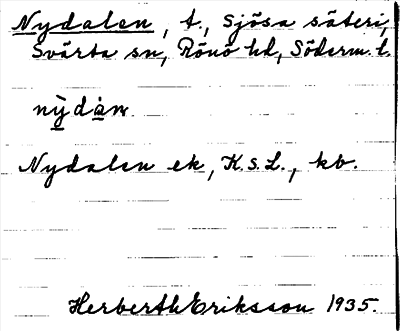 Nydalen, t., Sjösa säteri,
Svärta sn, Rönö hd, Söderm. l.
nỳdàn.
Nydalen ek, K.s.L., kb.
Herberth Eriksson 1935.